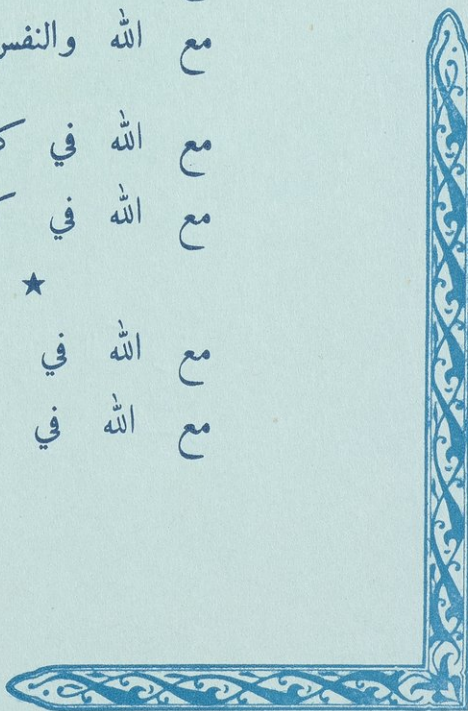 مع الله والنفس
مع الله في
مع الله في
★
مع الله في
مع الله في